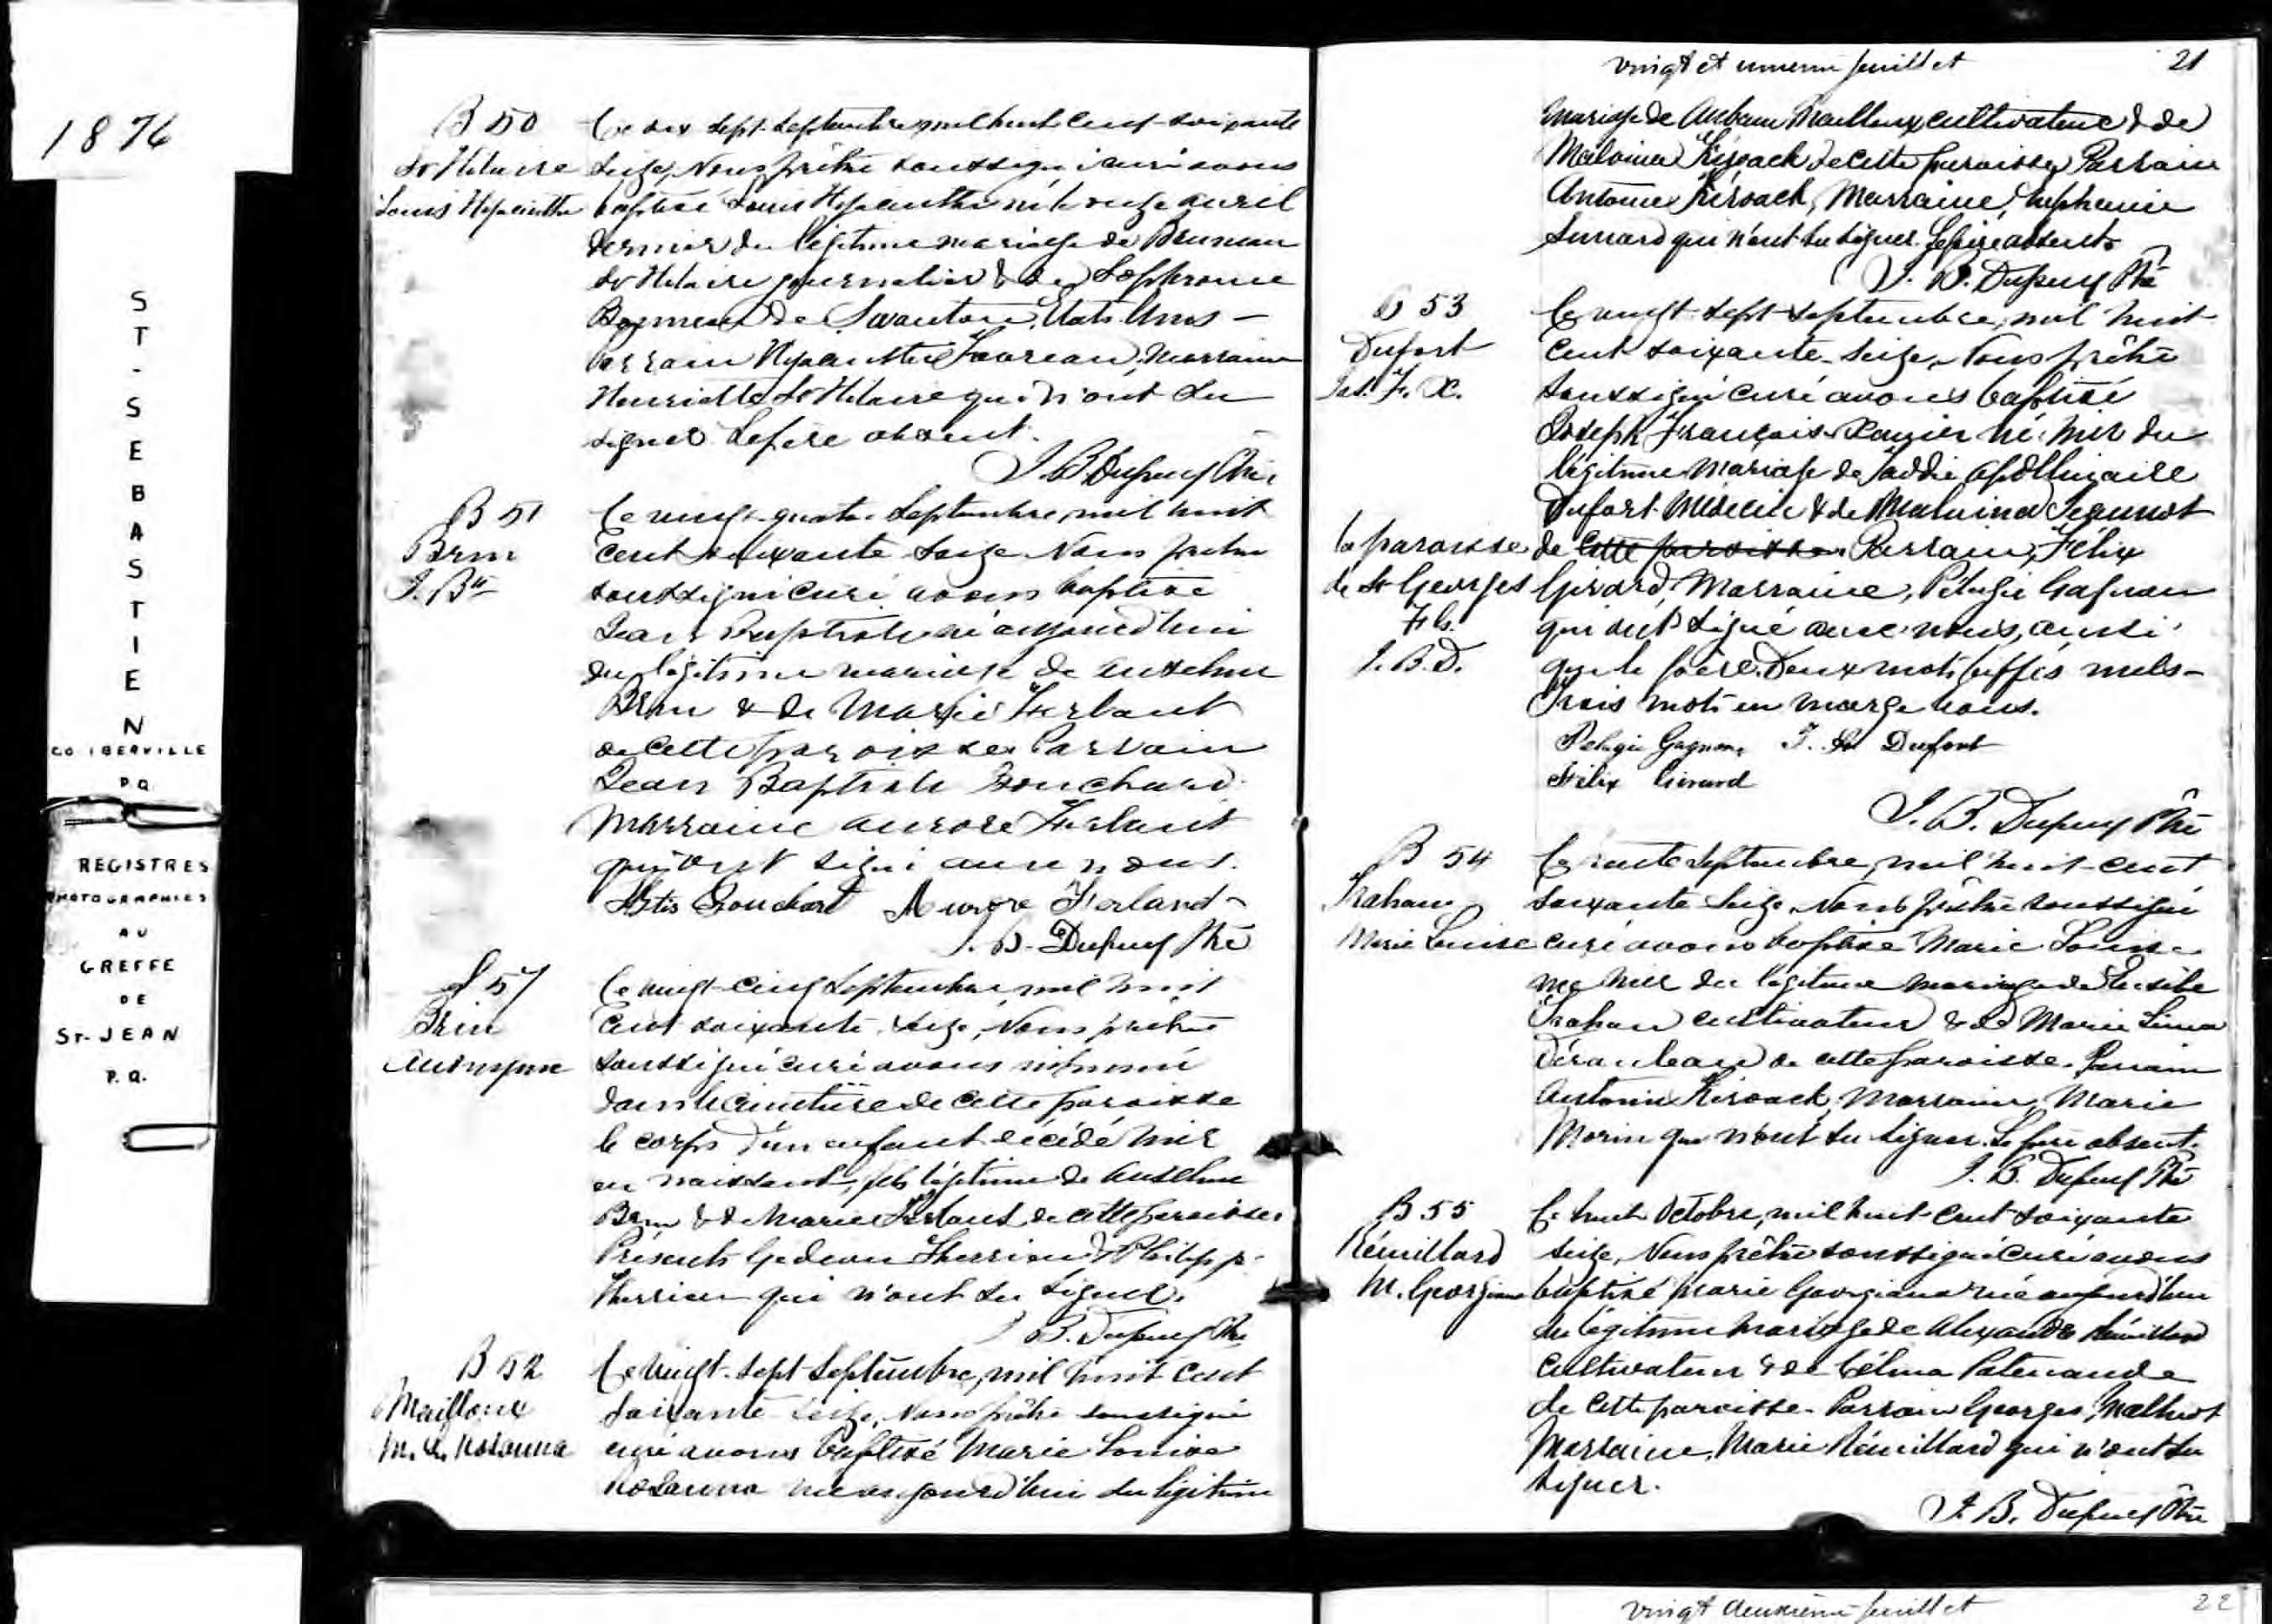 1876
ST-SEBASTIEN
CO IBERVILLE
P.Q.
REGISTRES
PHOTOGRAPHIES
AU
GREFFE
DE
ST-JEAN
P.Q.
B 50
St Hilaire
Louis Hyacinthe
Le dix sept Septembre mil huit cent soixante
seize, Nous prêtre soussigné curé avons
baptisé Louis Hyacinthe né le onze avril
dernier du légitime mariage de Bruneau
St Hilaire journalier & de Sophronie
de Swanton, Etats Unis –
Parrain Hyacinthe marraine
Henriette St Hilaire qui n'ont su
signer Le père absent.
J. B. Dupuy Ptre
B 51
Brin
J. Bte
Le vingt-quatre Septembre, mil huit
cent soixante-seize Nous prêtre
soussigné curé avons baptisé
Jean Baptiste né aujourd'hui
du légitime mariage de Anselme
Brin & de Marie Ferlant
de cette paroisse Parrain
Jean Baptiste
Marraine Aurore Ferlant
qui ont signé avec nous.
Aurore Ferland
J. B. Dupuy Ptre
S 57
Brin
Anonyme
Le vingt-cinq Septembre, mil huit
Cent soixante-seize, Nous prêtre
soussigné curé avons inhumé
dans le cimetière de cette paroisse
le corps d'un enfant décédé hier
en naissant, fils légitime de Anselme
Brin & de Marie Ferlant de cette paroisse
Présents Gédéon Therrien & Philippe
Therrien qui n'ont su signer.
J. B. Dupuy Ptre
B 52
Mailloux
M. L. Rosanna
Le vingt-sept Septembre, mil huit cent
soixante-seize, Nous prêtre soussigné
curé avons baptisé Marie Louise
Rosanna née aujourd'hui du légitime
vingt et unième feuillet 21
mariage de Mailloux cultivateur & de
Malvina Kirouack de cette paroisse, Parrain
Antoine Kirouack, Marraine,
qui n'ont su signer. Le père absent.
J. B. Dupuy Ptre
B 53
Dufort
Jos. F. X.
Le vingt-sept Septembre, mil huit
Cent soixante-seize, Nous prêtre
soussigné curé avons baptisé
Joseph François-Xavier né hier du
légitime mariage de Apollinaire
Dufort Médecin & de Malvina
la paroisse
de St Georges
J. B. D.
de cette paroisse Parrain, Félix
Girard, Marraine, Pélagie Gagnon
qui ont signé avec nous, ainsi
que le père. Deux mots biffés nuls –
Trois mots en marge bons.
Pelagie Gagnon Dufort
Félix Girard
J. B. Dupuy Ptre
B 54
Trahan
Marie Louise
Le trente Septembre, mil huit-cent
soixante-seize, Nous prêtre soussigné
curé avons baptisé Marie Louise
née hier du légitime mariage de Eusèbe
Trahan cultivateur & de Marie
de cette paroisse. Parrain
Antoine Kirouack, Marraine, Marie
Morin qui n'ont su signer. Le père absent.
J. B. Dupuy Ptre
B 55
Rémillard
M. Georgiana
Le huit Octobre, mil huit-cent soixante
seize, Nous prêtre soussigné curé avons
baptisé Marie Georgiana née aujourd'hui
du légitime mariage de Alexandre Rémillard
Cultivateur & de Célina Patenaude
de cette paroisse. Parrain Georges
Marraine, Marie Rémillard qui n'ont su
signer.
J. B. Dupuy Ptre
vingt deuxième feuillet 22